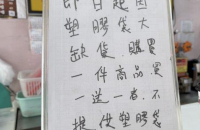 即日起因
塑膠袋大
缺貨.購買
一件商品.買
一送一者.不
提供塑膠袋